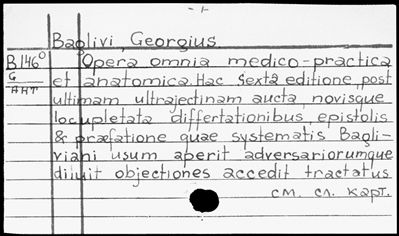 Baglivi, Georgius
B146° Opera omnia medico-practica
G et anatomica. Hac sexta editione, post
АНТ ultimam ultrajectinam aucta, novisque
locupletata differtationibus, epistolis
& præfatione quae systematis Bagli-
viani usum aperit adversariorumque
diluit objectiones accedit tractatus
см. сл. карт.